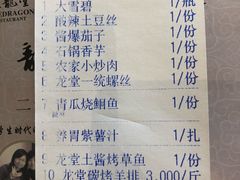 大雪碧 1/瓶
2 酸辣土豆丝 1/份
3 酱爆茄子 1/份
4 石锅香芋 1/份
5 农家小炒肉 1/份
6 龙堂一统螺丝 1/份
7 青瓜烧鮰鱼 1/份
8 养胃紫薯汁 1/扎
9 龙堂土酱烤草鱼 1/份
10 龙堂碳烤羊排 3.000/斤